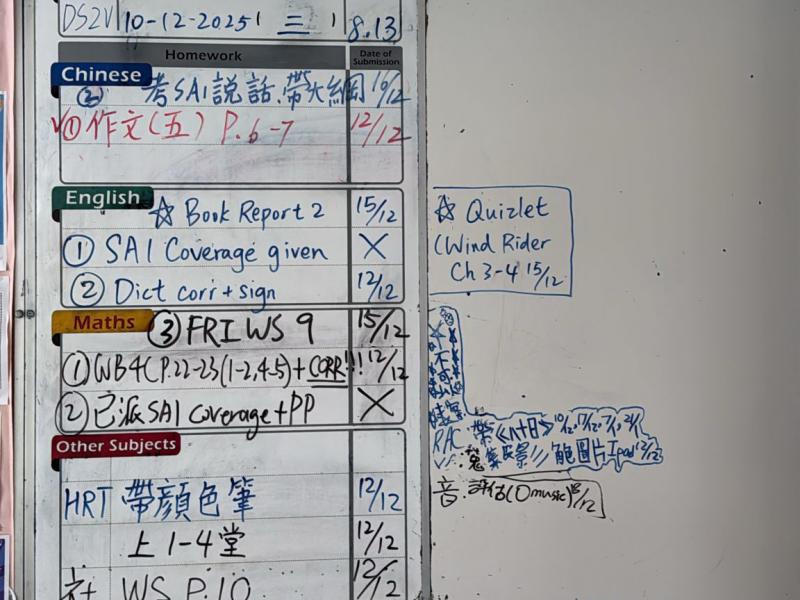 DS2V 10-12-2025 (三) 8.13
Homework Date of Submission
Chinese
② 考SA1說話.帶大綱 10/12
✓① 作文(五) P.6-7 12/12
English
☆ Book Report 2 15/12
① SA1 Coverage given X
② Dict corr + sign 12/12
Maths
③ FRI WS 9 15/12
① WB4C P.22-23(1-2,4-5)+CORR!!! 12/12
② 已派SA1 coverage+PP X
Other Subjects
HRT 帶顏色筆 12/12
上1-4堂 12/12
社 WS P.10 12/12
☆ Quizlet
(Wind Rider
Ch 3-4 15/12
☆不可以
RAC: 帶
圖片Ipad
音: 評估(Omusic)